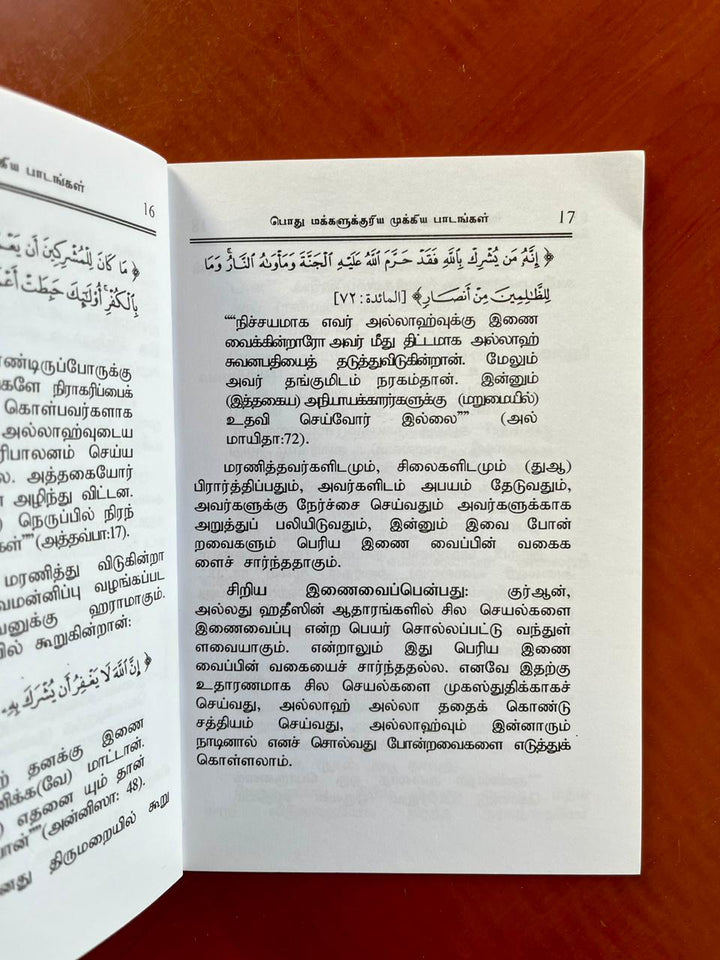 கிய பாடங்கள்
16
﴿ مَا كَانَ لِلْمُشْرِكِينَ أَن يَعْ
بِالْكُفْرِ ۚ أُولَٰئِكَ حَبِطَتْ أَعْ
ண்டிருப்போருக்கு
களே நிராகரிப்பைக்
கொள்பவர்களாக
அல்லாஹ்வுடைய
ரிபாலனம் செய்ய
லை. அத்தகையோர்
அழிந்து விட்டன.
) நெருப்பில் நிரந்
கள்""(அத்தவ்பா:17).
மரணித்து விடுகின்றா
வமன்னிப்பு வழங்கப்பட
வனுக்கு ஹராமாகும்.
யில் கூறுகின்றான்:
﴿ إِنَّ اللَّهَ لَا يَغْفِرُ أَن يُشْرَكَ بِهِ
ற் தனக்கு இணை
னிக்க(வே) மாட்டான்.
) எதனை யும் தான்
பான்""(அன்னிஸா: 48).
னது திருமறையில் கூறு
பொது மக்களுக்குரிய முக்கிய பாடங்கள்
17
﴿ إِنَّهُۥ مَن يُشْرِكْ بِٱللَّهِ فَقَدْ حَرَّمَ ٱللَّهُ عَلَيْهِ ٱلْجَنَّةَ وَمَأْوَىٰهُ ٱلنَّارُ ۖ وَمَا
لِلظَّٰلِمِينَ مِنْ أَنصَارٍ ﴾ [المائدة: ٧٢]
""நிச்சயமாக எவர் அல்லாஹ்வுக்கு இணை
வைக்கின்றாரோ அவர் மீது திட்டமாக அல்லாஹ்
சுவனபதியைத் தடுத்துவிடுகின்றான். மேலும்
அவர் தங்குமிடம் நரகம்தான். இன்னும்
(இத்தகைய) அநியாயக்காரர்களுக்கு (மறுமையில்)
உதவி செய்வோர் இல்லை"" (அல்
மாயிதா:72).
மரணித்தவர்களிடமும், சிலைகளிடமும் (துஆ)
பிரார்த்திப்பதும், அவர்களிடம் அபயம் தேடுவதும்,
அவர்களுக்கு நேர்ச்சை செய்வதும் அவர்களுக்காக
அறுத்துப் பலியிடுவதும், இன்னும் இவை போன்
றவைகளும் பெரிய இணை வைப்பின் வகைக
ளைச் சார்ந்ததாகும்.
சிறிய இணைவைப்பென்பது: குர்ஆன்,
அல்லது ஹதீஸின் ஆதாரங்களில் சில செயல்களை
இணைவைப்பு என்ற பெயர் சொல்லப்பட்டு வந்துள்
ளவையாகும். என்றாலும் இது பெரிய இணை
வைப்பின் வகையைச் சார்ந்ததல்ல. எனவே இதற்கு
உதாரணமாக சில செயல்களை முகஸ்துதிக்காகச்
செய்வது, அல்லாஹ் அல்லா ததைக் கொண்டு
சத்தியம் செய்வது, அல்லாஹ்வும் இன்னாரும்
நாடினால் எனச் சொல்வது போன்றவைகளை எடுத்துக்
கொள்ளலாம்.